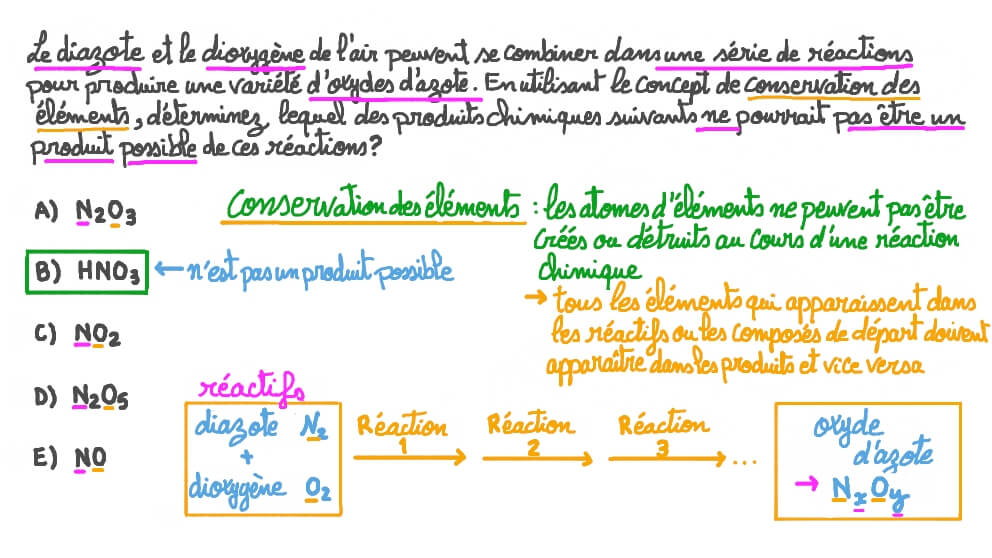 Le diazote et le dioxygène de l'air peuvent se combiner dans une série de réactions
pour produire une variété d'oxydes d'azote. En utilisant le concept de conservation des
éléments, déterminez lequel des produits chimiques suivants ne pourrait pas être un
produit possible de ces réactions?
A) N₂O₃
Conservation des éléments : les atomes d'éléments ne peuvent pas être
créés ou détruits au cours d'une réaction
chimique
B) HNO₃ ← n'est pas un produit possible
→ tous les éléments qui apparaissent dans
les réactifs ou les composés de départ doivent
apparaître dans les produits et vice versa
C) NO₂
D) N₂O₅
E) NO
réactifs
diazote N₂
+
dioxygène O₂
Réaction 1
Réaction 2
Réaction 3
...
oxyde
d'azote
→ NₓOᵧ